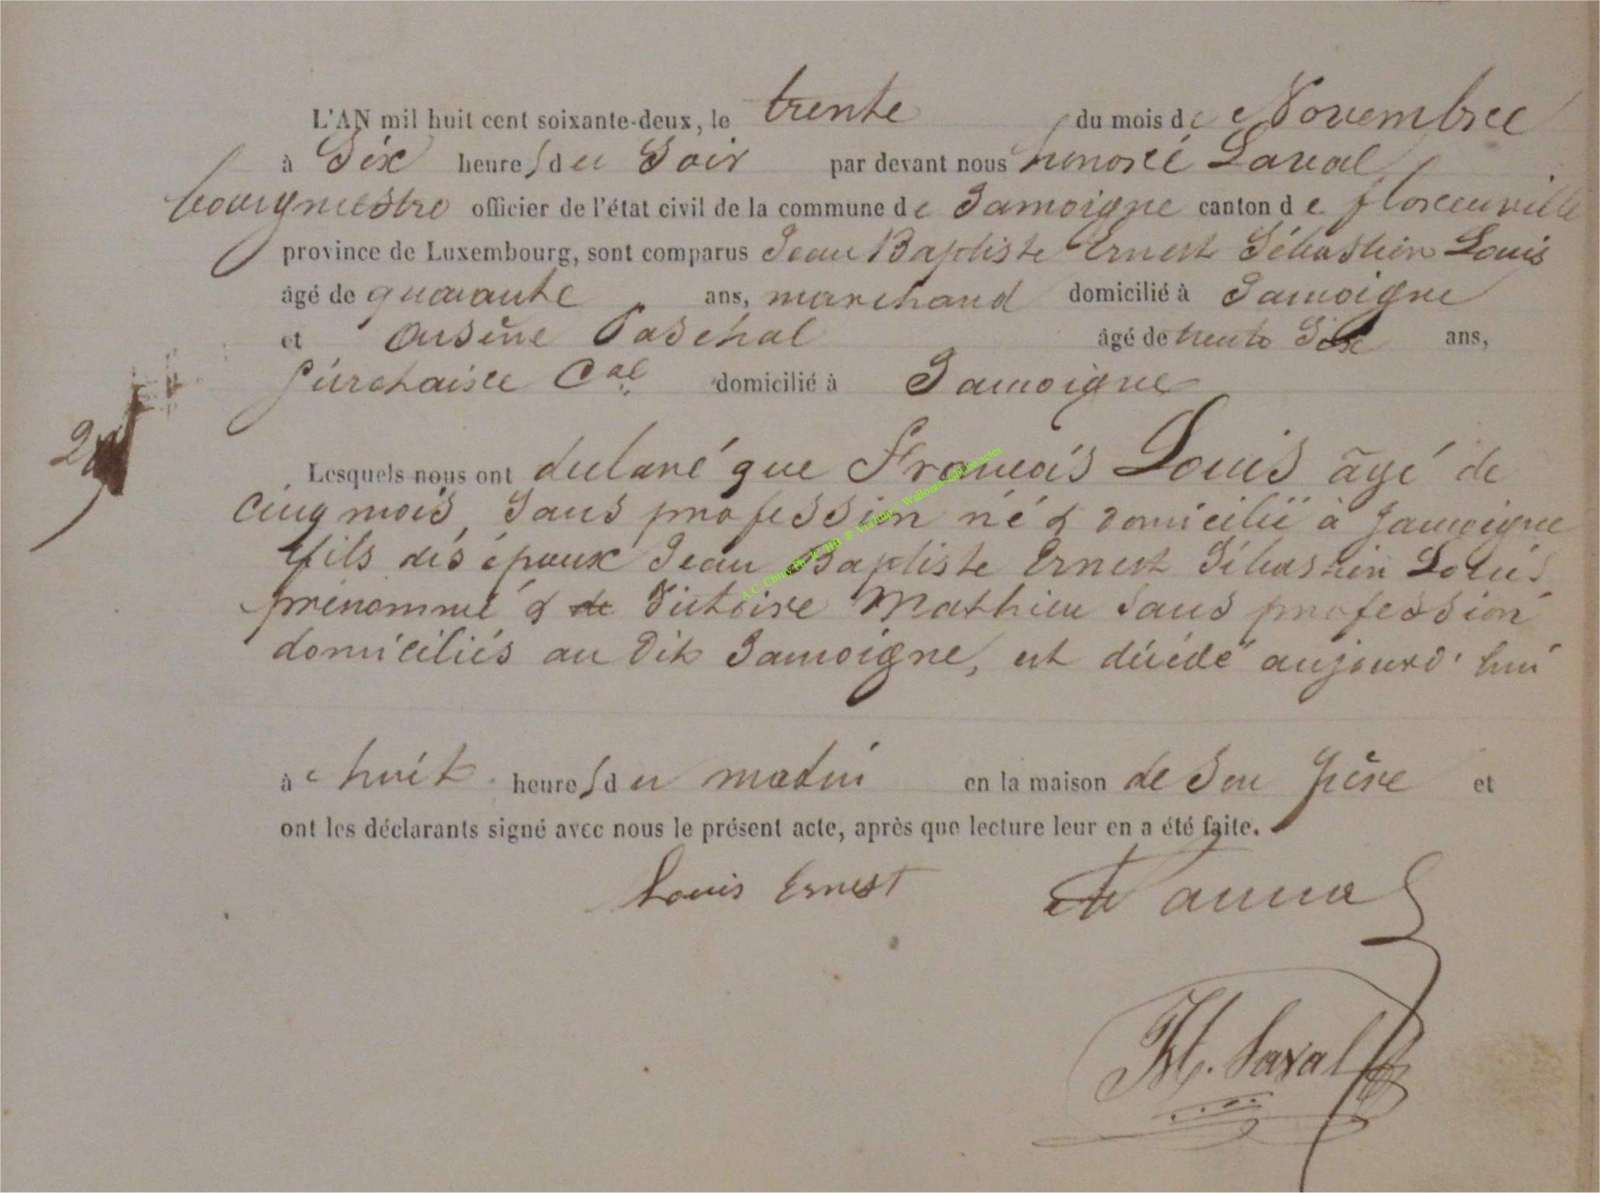 L'AN mil huit cent soixante-deux, le trente du mois de Novembre
à Six heures du Soir par devant nous honoré Laval
bourgmestre officier de l'état civil de la commune de Jamoigne canton de florenville
province de Luxembourg, sont comparus Jean Baptiste Ernest Sébastien Louis
âgé de quarante ans, marchand domicilié à Jamoigne
et Arsène Paschal âgé de trente Six ans,
domicilié à Jamoigne
Lesquels nous ont déclaré que François Louis âgé de
cinq mois, Sans profession né & domicilié à Jamoigne
fils des époux Jean Baptiste Ernest Sébastien Louis
prénommé & de Victoire Mathieu Sans profession
domiciliés au dit Jamoigne, est décédé aujourd'hui
à huit heures du matin en la maison de Son père et
ont les déclarants signé avec nous le présent acte, après que lecture leur en a été faite.
Louis Ernest
H. Laval